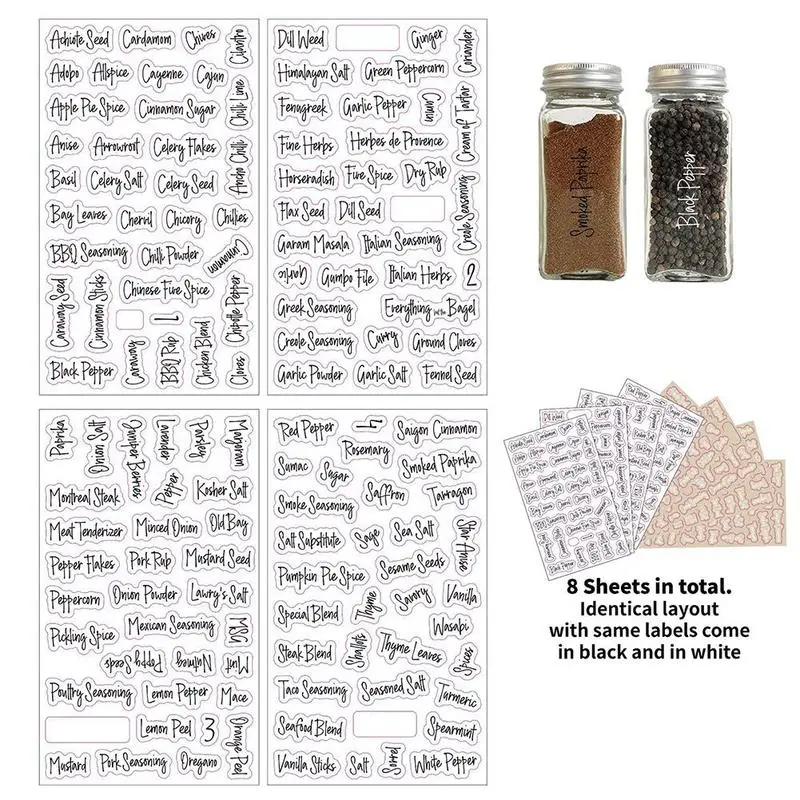 Achiote Seed Cardamom Chives Cilantro
Adobo Allspice Cayenne Cajun
Chili Lime
Apple Pie Spice Cinnamon Sugar
Anise Arrowroot Celery Flakes
Ancho Chili
Basil Celery Salt Celery Seed
Bay Leaves Chervil Chicory Chilies
BBQ Seasoning Chili Powder
Cinnamon
Caraway Seed Cinnamon Sticks Chinese Five Spice
Chipotle Pepper
1
Caraway BBQ Rub Chicken Blend Cloves
Black Pepper
Dill Weed Ginger Coriander
Himalayan Salt Green Peppercorn
Fenugreek Garlic Pepper Cumin Cream of Tartar
Fine Herbs Herbes de Provence
Horseradish Five Spice Dry Rub
Creole Seasoning
Flax Seed Dill Seed
Garam Masala Italian Seasoning
Garlic Gumbo File Italian Herbs 2
Greek Seasoning Everything but the Bagel
Creole Seasoning Curry Ground Cloves
Garlic Powder Garlic Salt Fennel Seed
Smoked Paprika
Black Pepper
Paprika Onion Salt Juniper Berries Lavender Parsley Marjoram
Pepper
Montreal Steak Kosher Salt
Meat Tenderizer Minced Onion Old Bay
Pepper Flakes Pork Rub Mustard Seed
Peppercorn Onion Powder Lawry's Salt
Pickling Spice Mexican Seasoning MSG
Poppy Seeds Nutmeg Mint
Poultry Seasoning Lemon Pepper Mace
Lemon Peel 3 Orange Peel
Mustard Pork Seasoning Oregano
Red Pepper 4 Saigon Cinnamon
Rosemary
Sumac Sugar Smoked Paprika
Smoke Seasoning Saffron Tarragon
Salt Substitute Sage Sea Salt Star Anise
Pumpkin Pie Spice Sesame Seeds
Special Blend Thyme Savory Vanilla
Wasabi
Steak Blend Shallots Thyme Leaves Spices
Taco Seasoning Seasoned Salt Turmeric
Seafood Blend Spearmint
Vanilla Sticks Salt Sorrel White Pepper
8 Sheets in total.
Identical layout
with same labels come
in black and in white